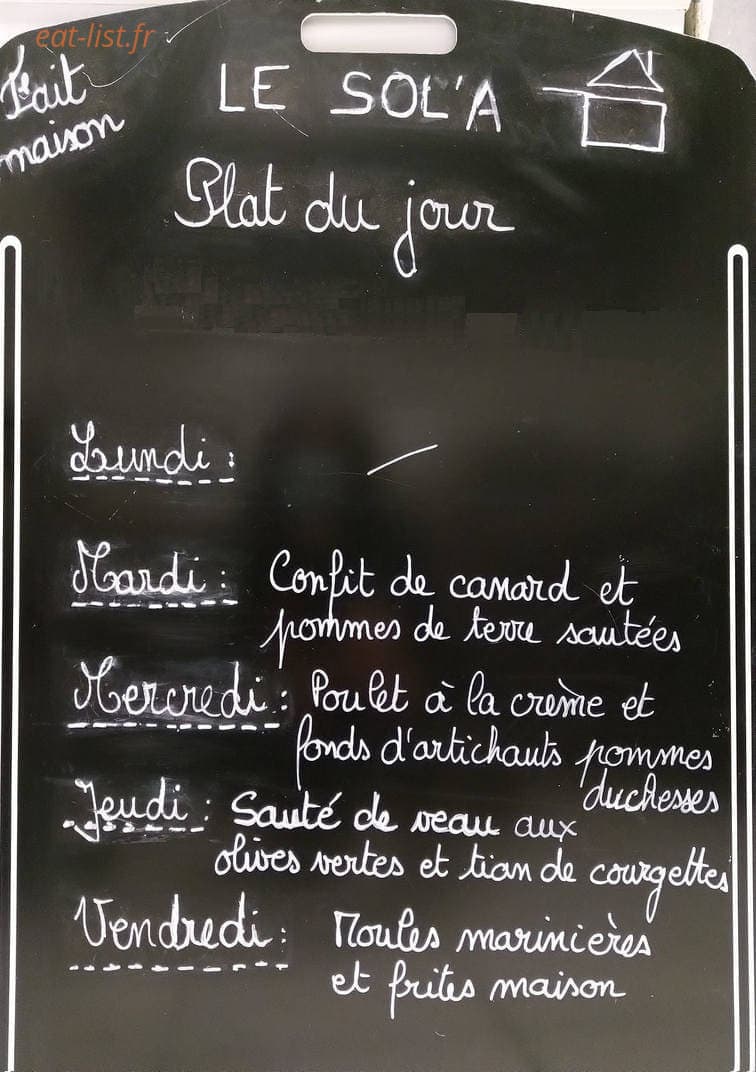 eat-list.fr
Fait
maison
LE SOL'A
Plat du jour
Lundi :
Mardi : Confit de canard et
pommes de terre sautées
Mercredi : Poulet à la crème et
fonds d'artichauts pommes
duchesses
Jeudi : Sauté de veau aux
olives vertes et tian de courgettes
Vendredi : Moules marinières
et frites maison